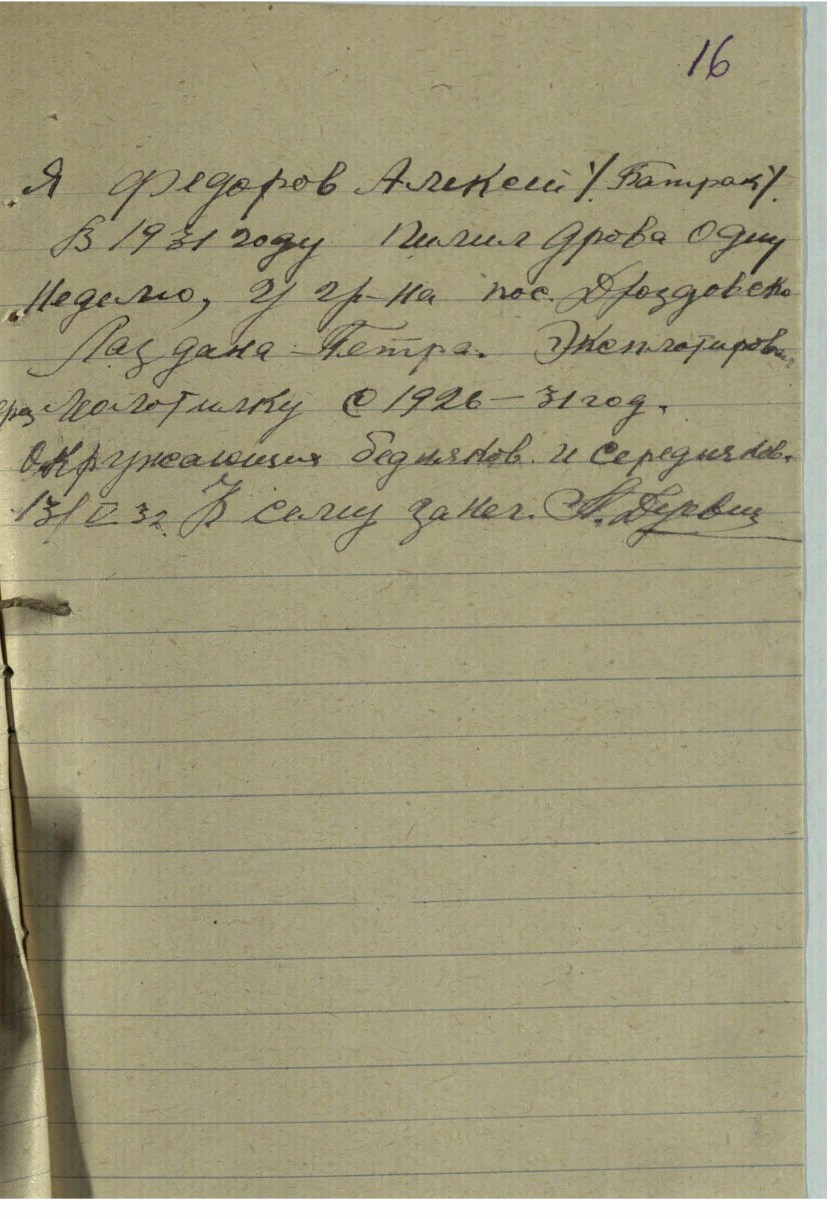 16
Я Федоров Алексей /.Батрак/.
В 1931 году пилил дрова одну
неделю, у гр-на пос. Дроздовско
Лаздана Петра. Эксплотирова
рез молотилку с 1926 – 31 год.
окружающия бедняков. и середняков.
13/V 32. К сему